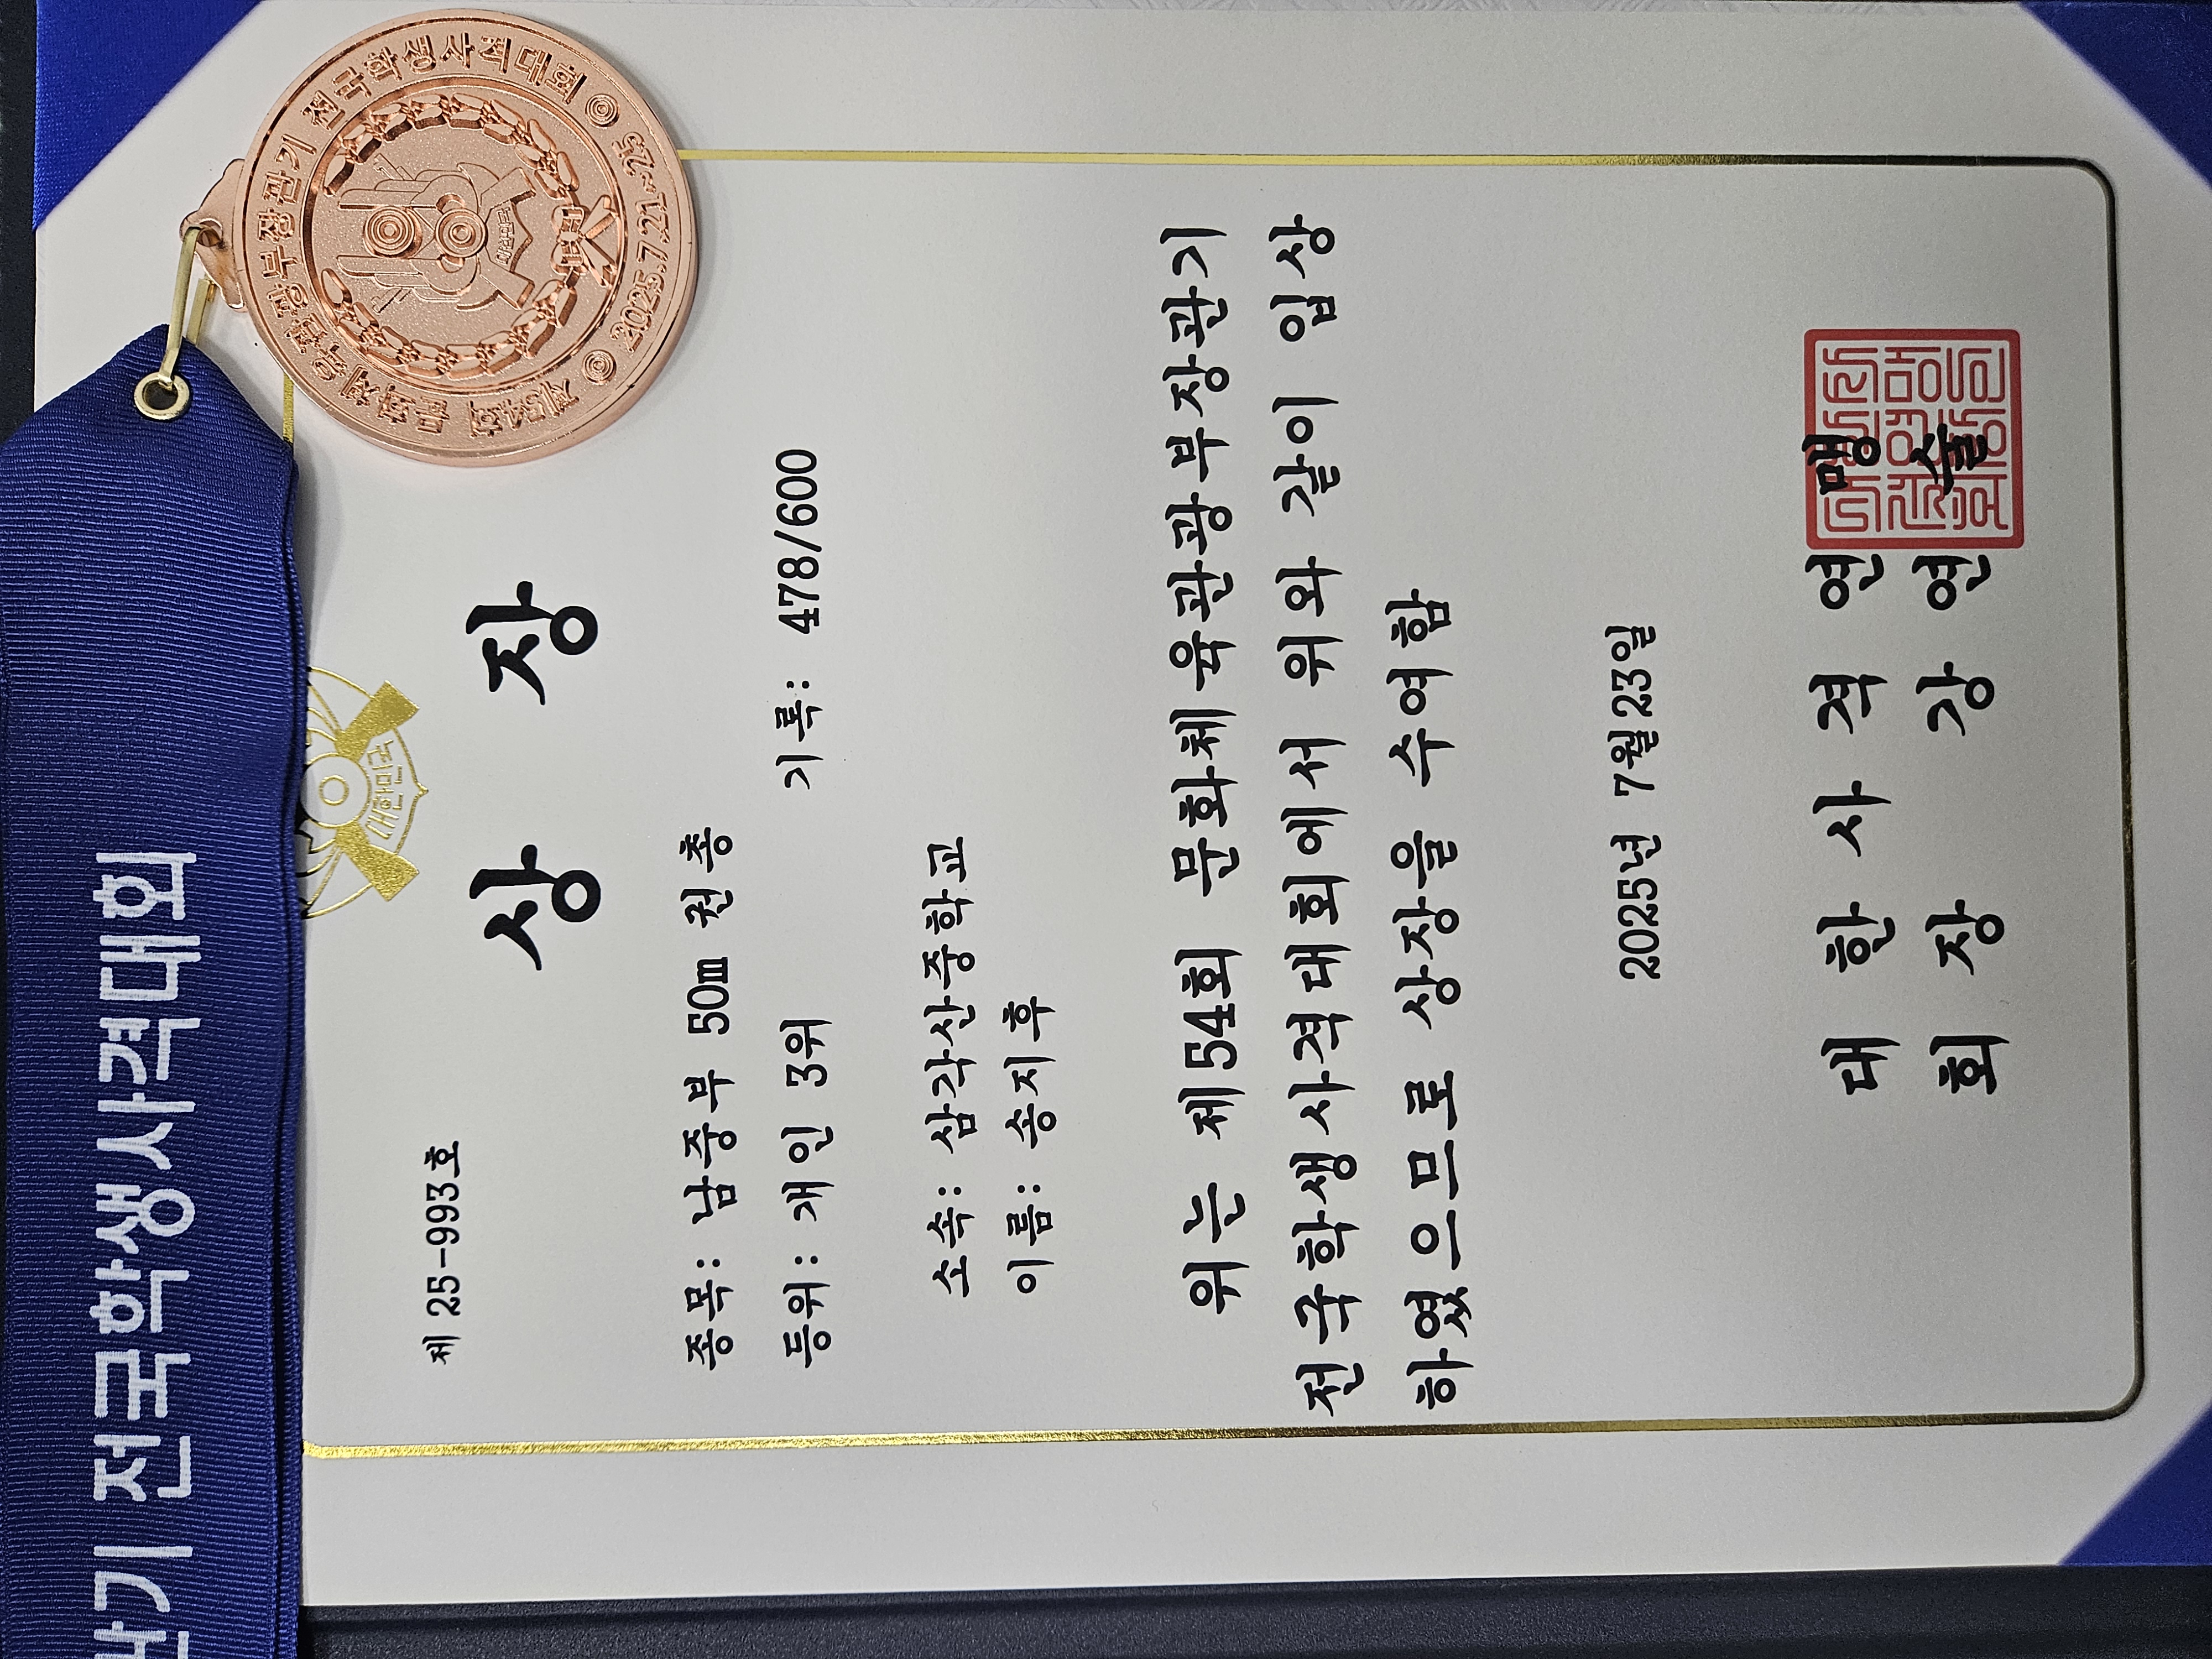 제 25-993호
대한민국
상 장
종목: 남중부 50m 권총
등위: 개인 3위 기록: 478/600
소속: 삼각산중학교
이름: 송지후
위는 제54회 문화체육관광부장관기
전국학생사격대회에서 위와 같이 입상
하였으므로 상장을 수여함
2025년 7월23일
대 한 사 격 연 맹
회 장 강 연 술
관기 전국학생사격대회
제54회 문화체육관광부장관기 전국학생사격대회
2025.7.21.~25
대한민국